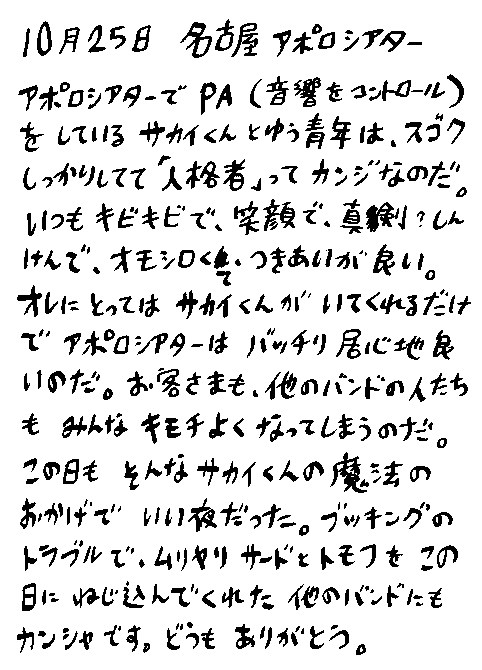 10月25日 名古屋 アポロシアター
アポロシアターで PA (音響をコントロール)
をしている サカイくんとゆう青年は、スゴク
しっかりしてて「人格者」って カンジなのだ。
いつも キビキビで、笑顔で、真剣?しん
けんで、オモシロくて、つきあいが良い。
オレにとっては サカイくんが いてくれるだけ
で アポロシアターは バッチリ 居心地良
いのだ。お客さまも、他のバンドの人たち
も みんな キモチよくなってしまうのだ。
この日も そんなサカイくんの魔法の
おかげで いい夜だった。ブッキングの
トラブルで、ムリヤリ サードとトモフを この
日に ねじ込んでくれた 他のバンドにも
カンシャです。どうも ありがとう。